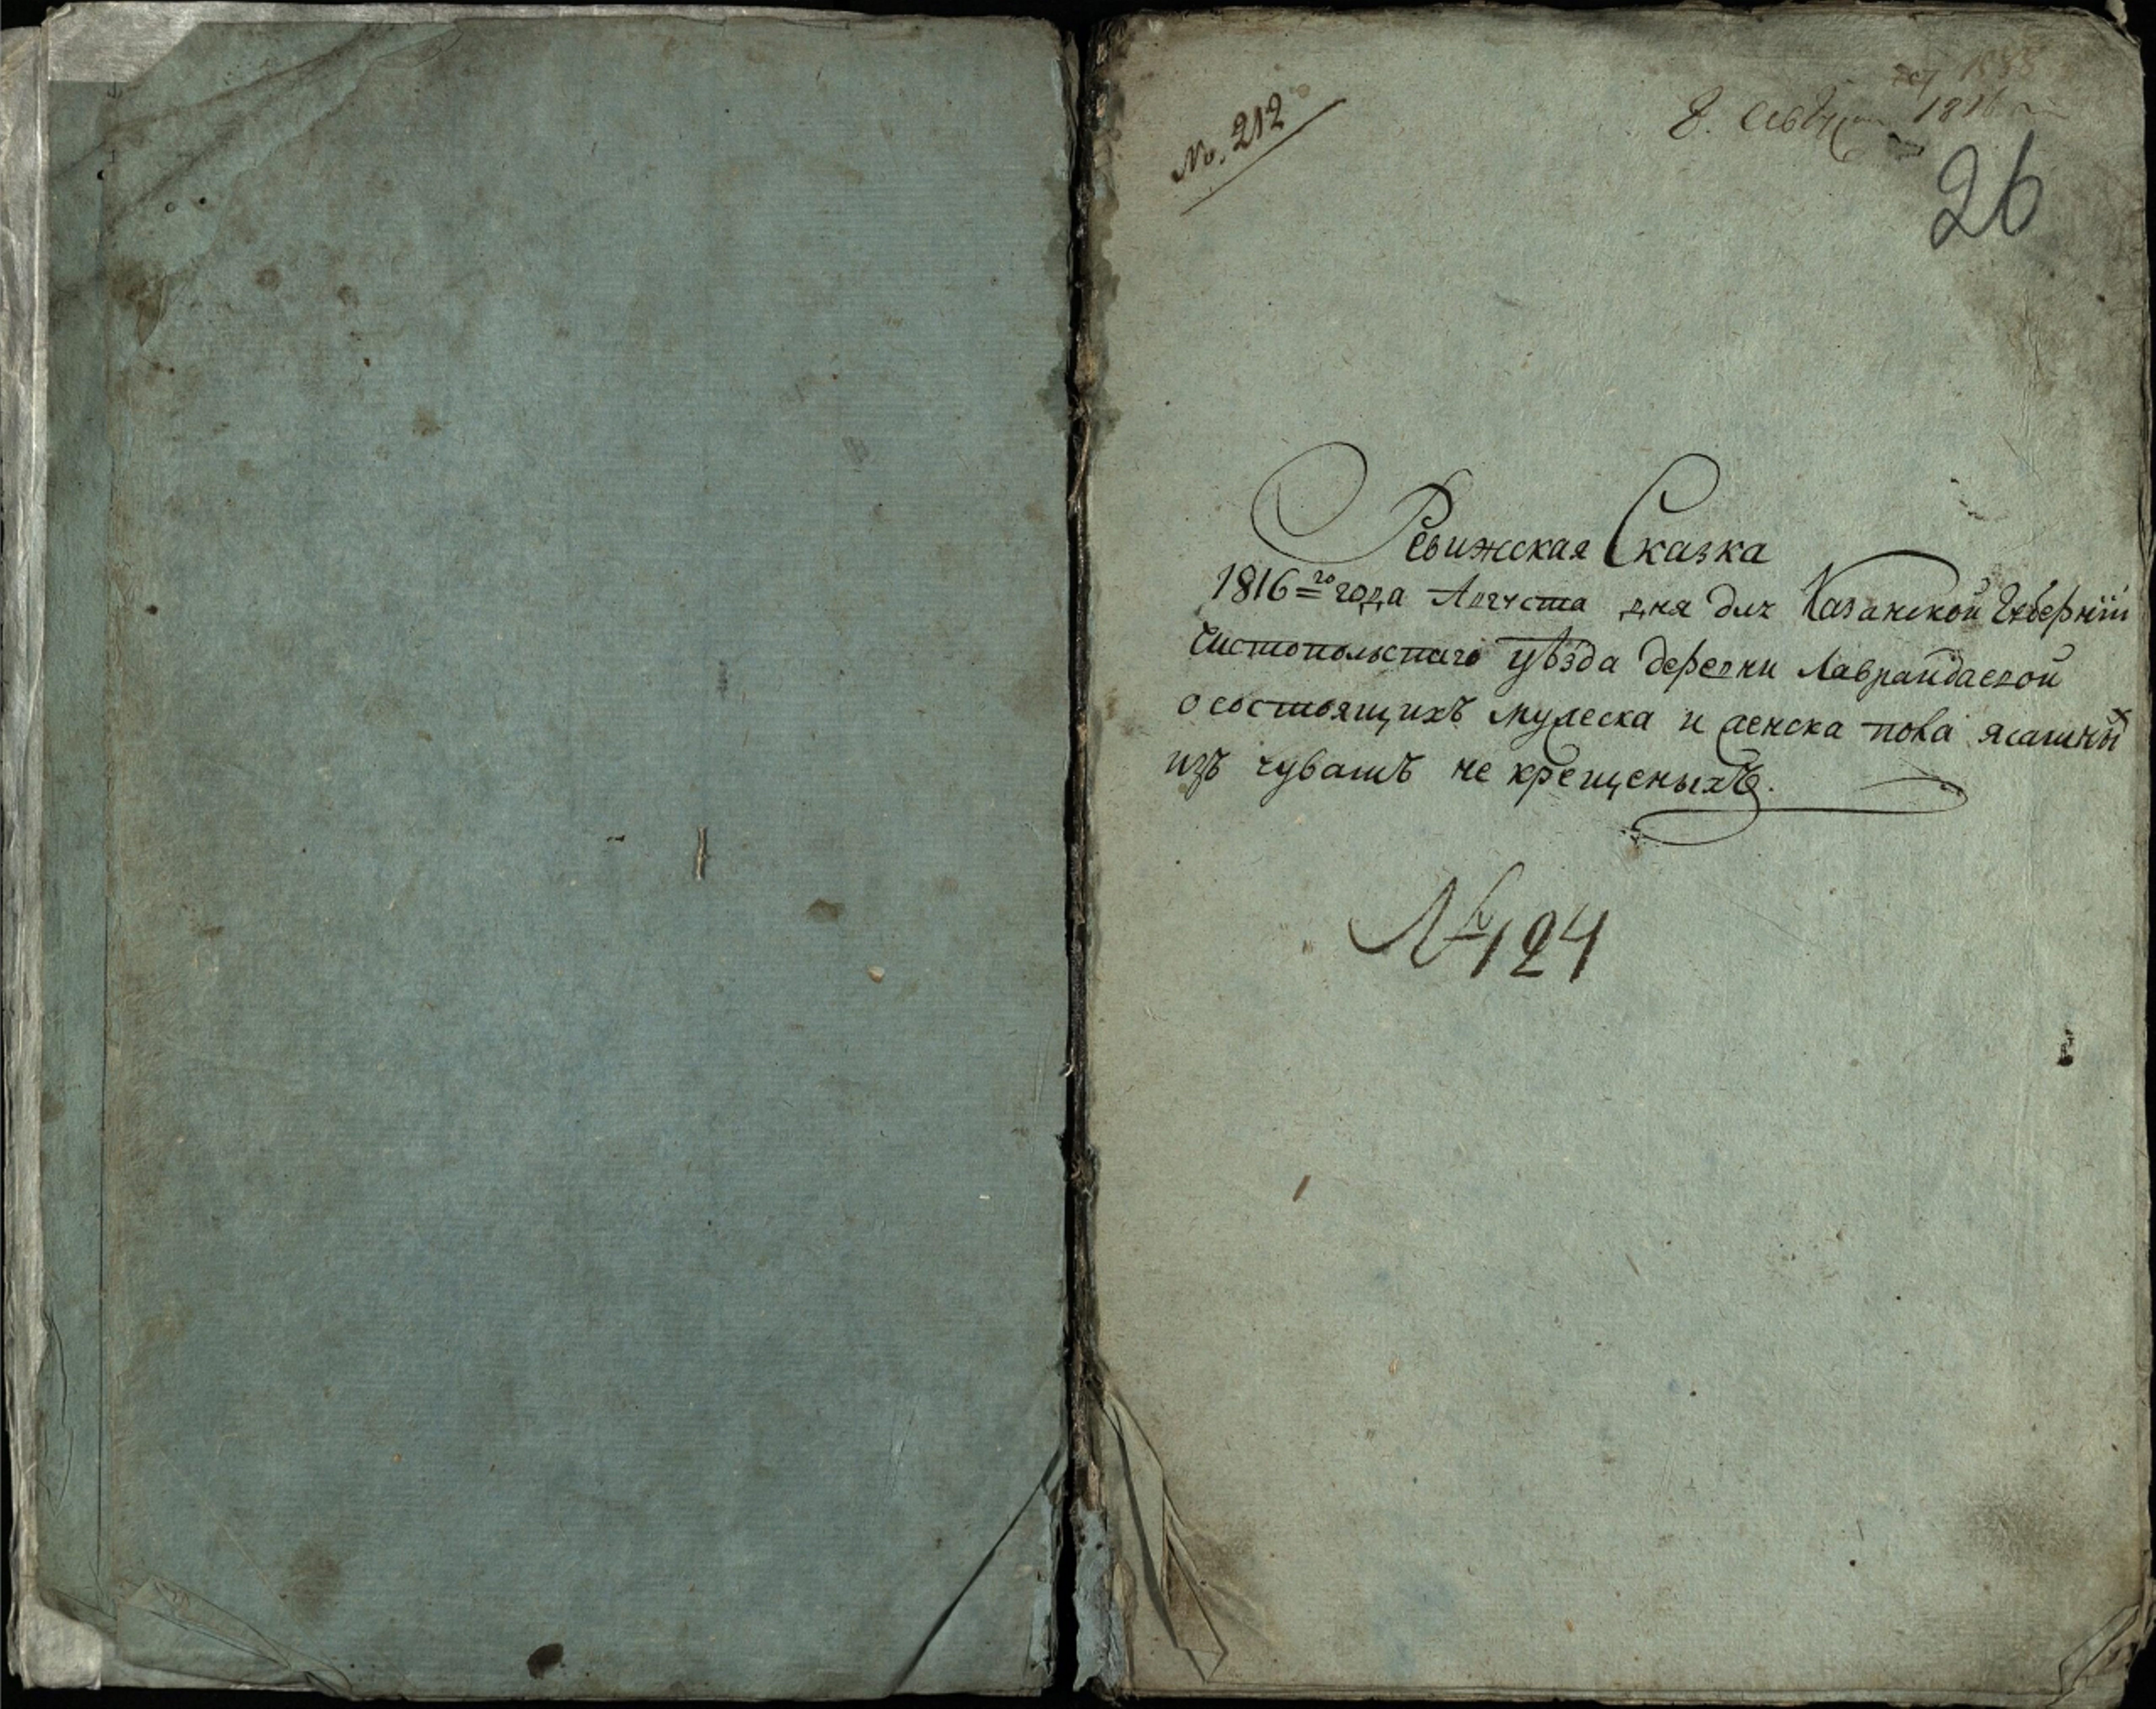 No. 212
1816
26
Ревижская Сказка
1816=го года Августа дня длх Казанской Губернїи
Чистопольстаго уѣзда деревни Лаврандаской
о состоящихъ мужеска и женска пола ясашных
изъ чувашъ не крещеныхъ.
№ 124